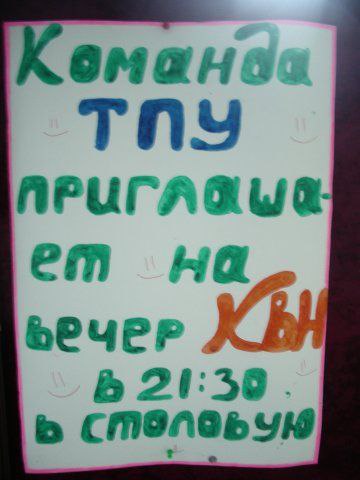 Команда
ТПУ
приглаша-
ет на
вечер КВН
в 21:30
в столовую